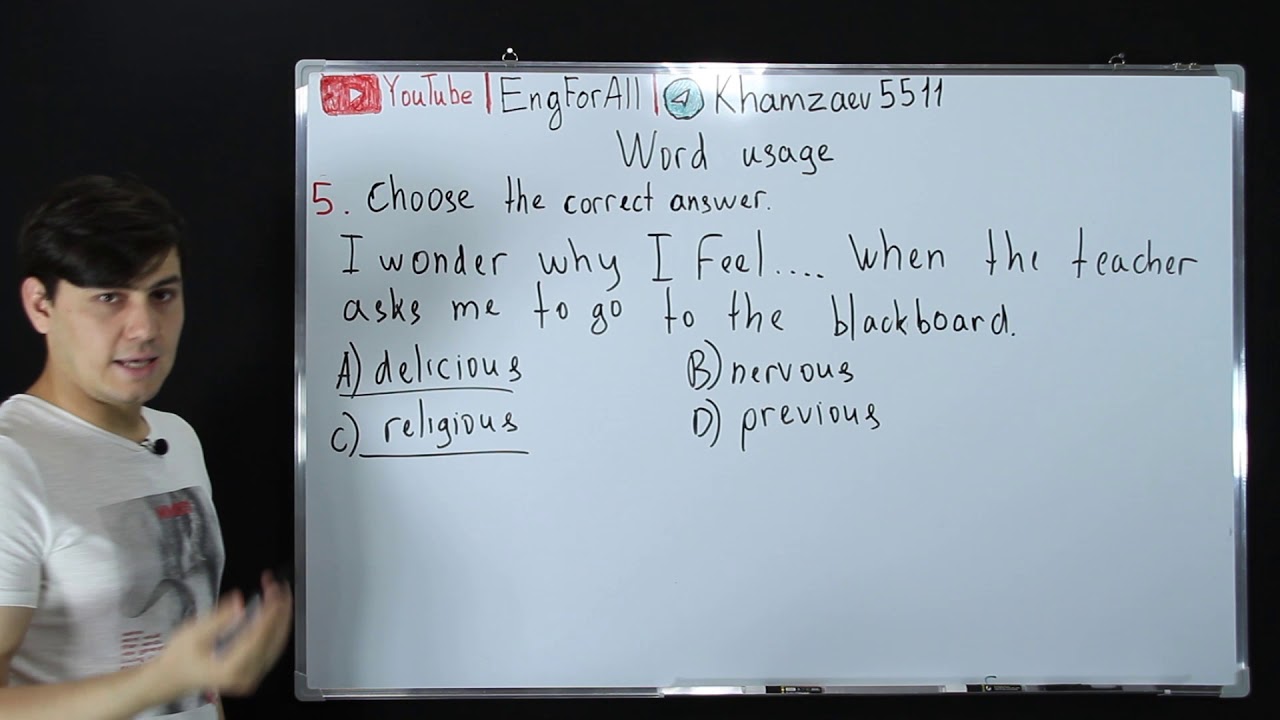 YouTube | EngForAll | Khamzaev5511
Word usage
5. Choose the correct answer.
I wonder why I feel.... when the teacher
asks me to go to the blackboard.
A) delicious B) nervous
C) religious D) previous